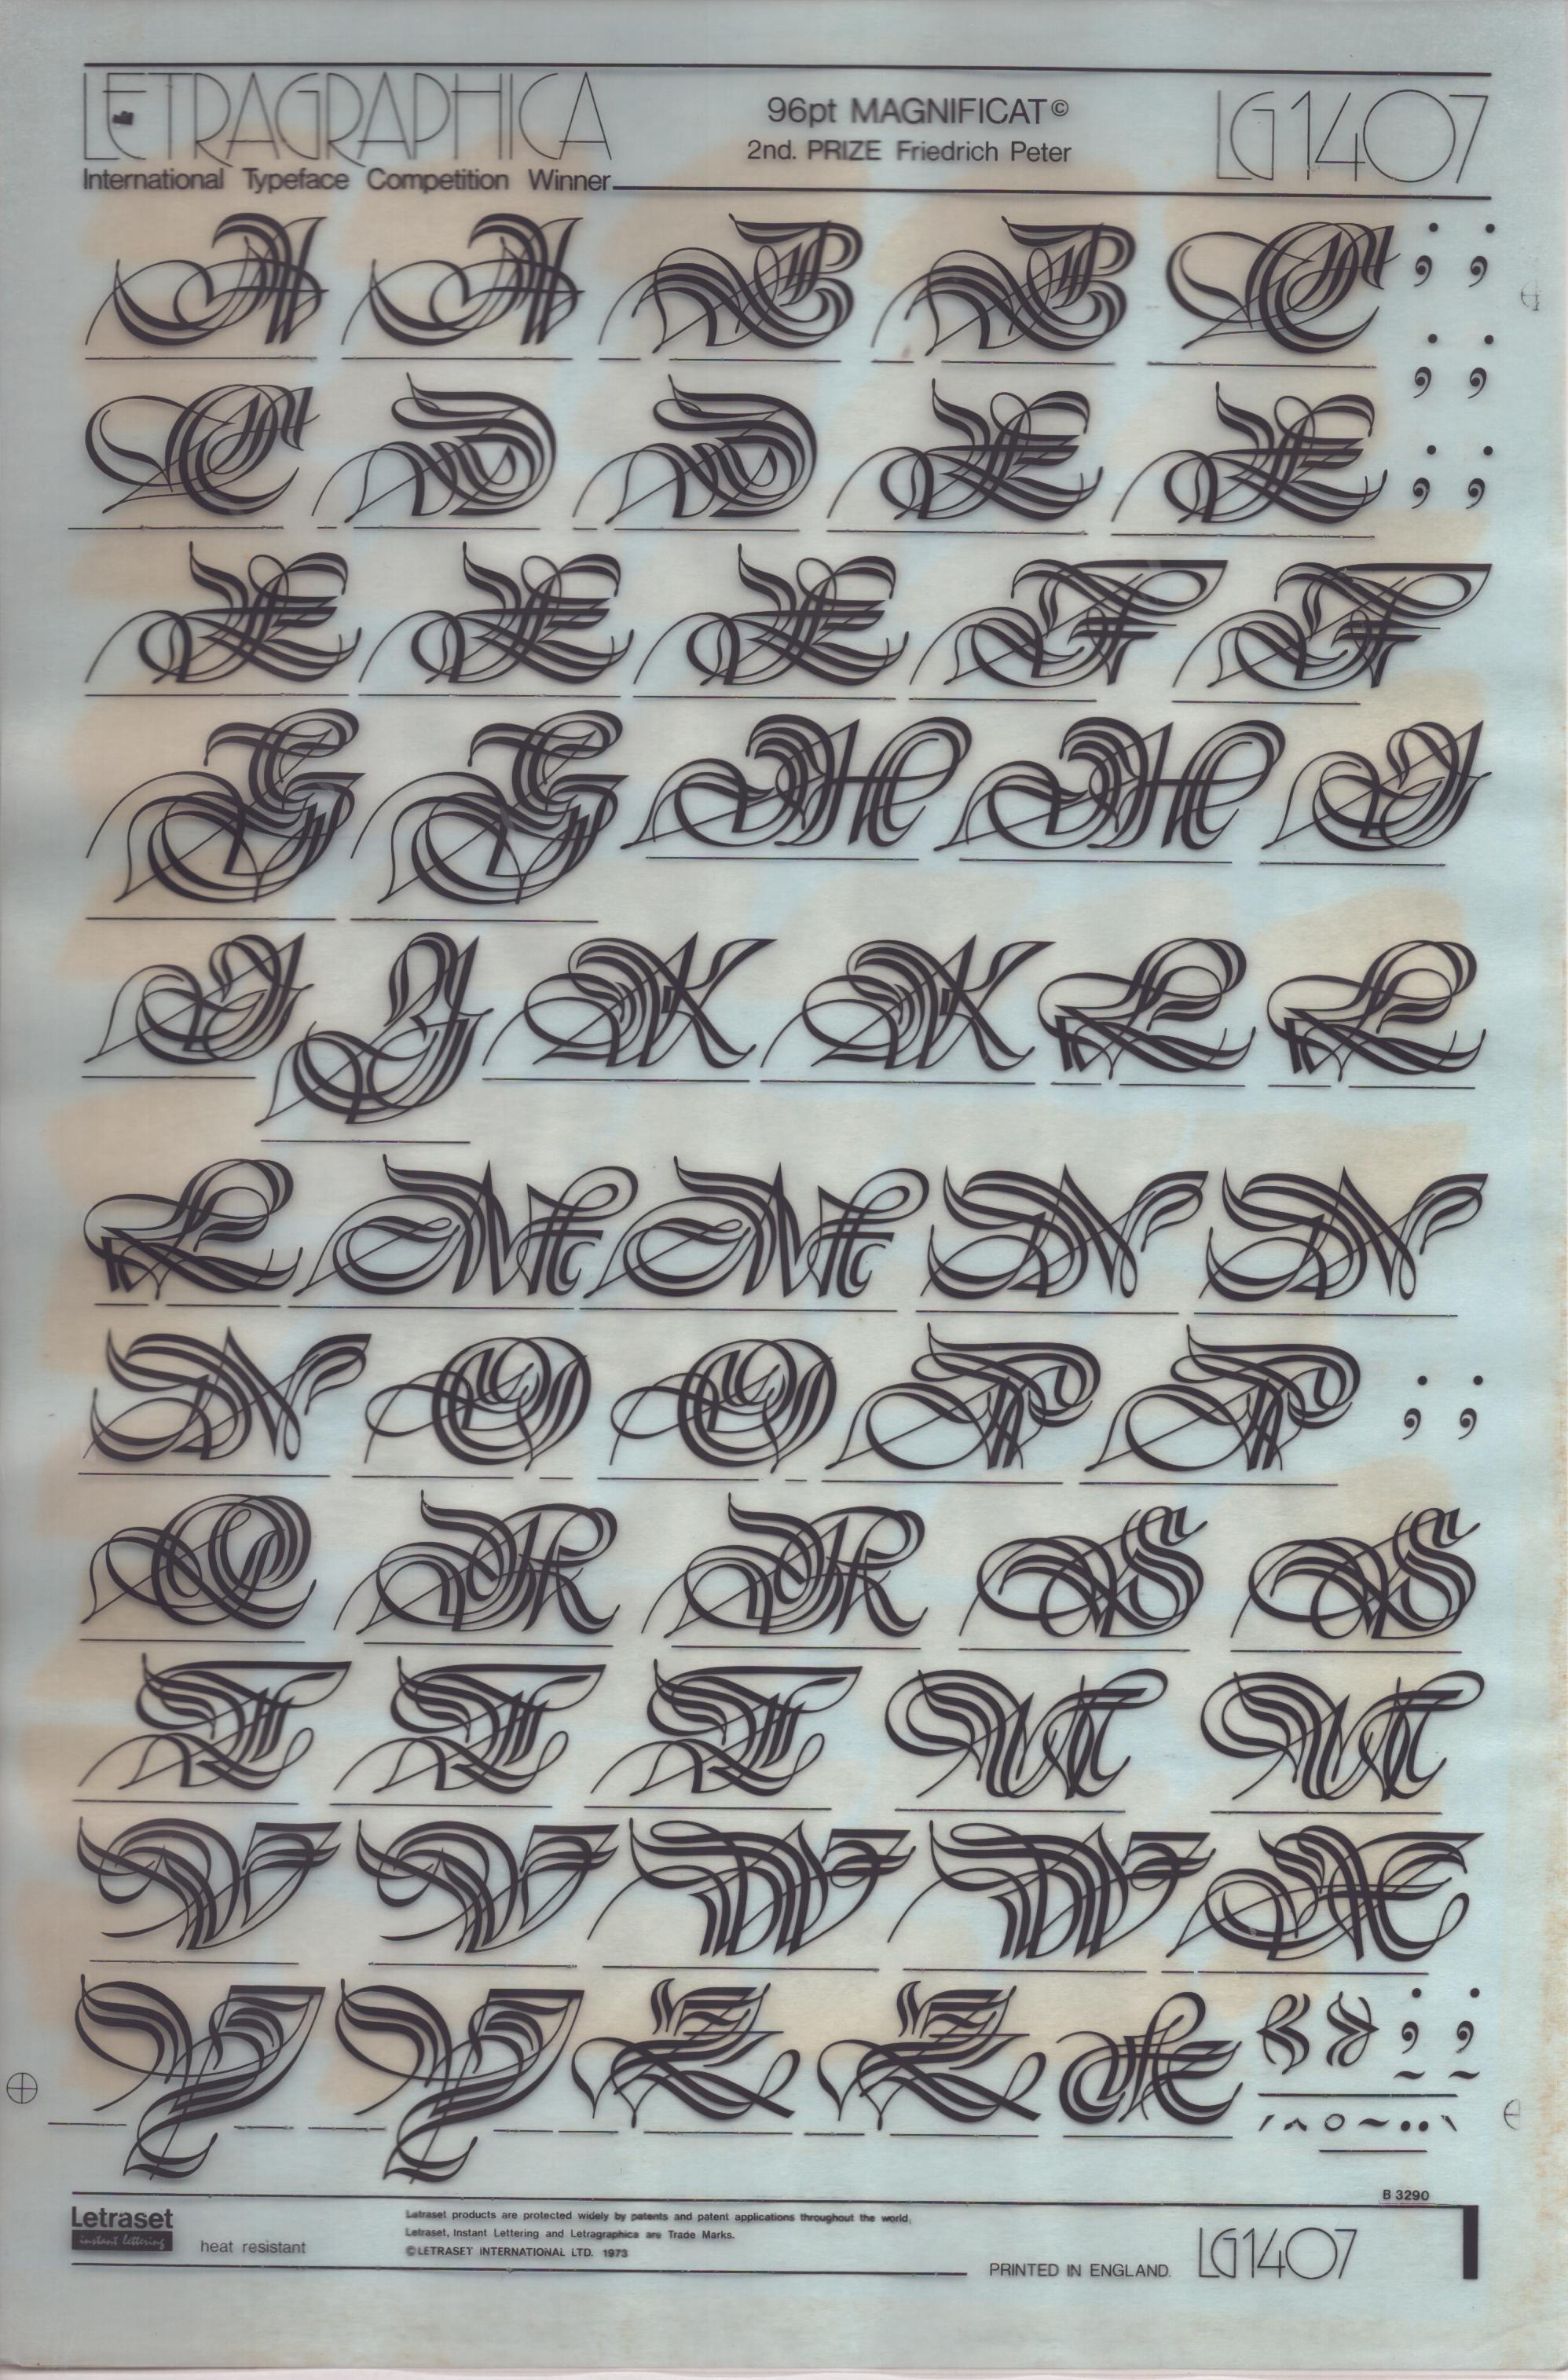 LETRAGRAPHICA 96pt MAGNIFICAT© LG1407
International Typeface Competition Winner 2nd. PRIZE Friedrich Peter
A A B B C ; ;
; ;
C D D E E ; ;
E E E F F
G G H H I
I J K K L L
L M M N N
N O O P P ; ;
Q R R S S
T T T U U
V V W W X
Y Y Z Z & « » ; ;
~ ~
´ ^ ° ~ ¨ `
B 3290
Letraset
instant lettering
heat resistant
Letraset products are protected widely by patents and patent applications throughout the world.
Letraset, Instant Lettering and Letragraphica are Trade Marks.
© LETRASET INTERNATIONAL LTD. 1973
PRINTED IN ENGLAND. LG1407